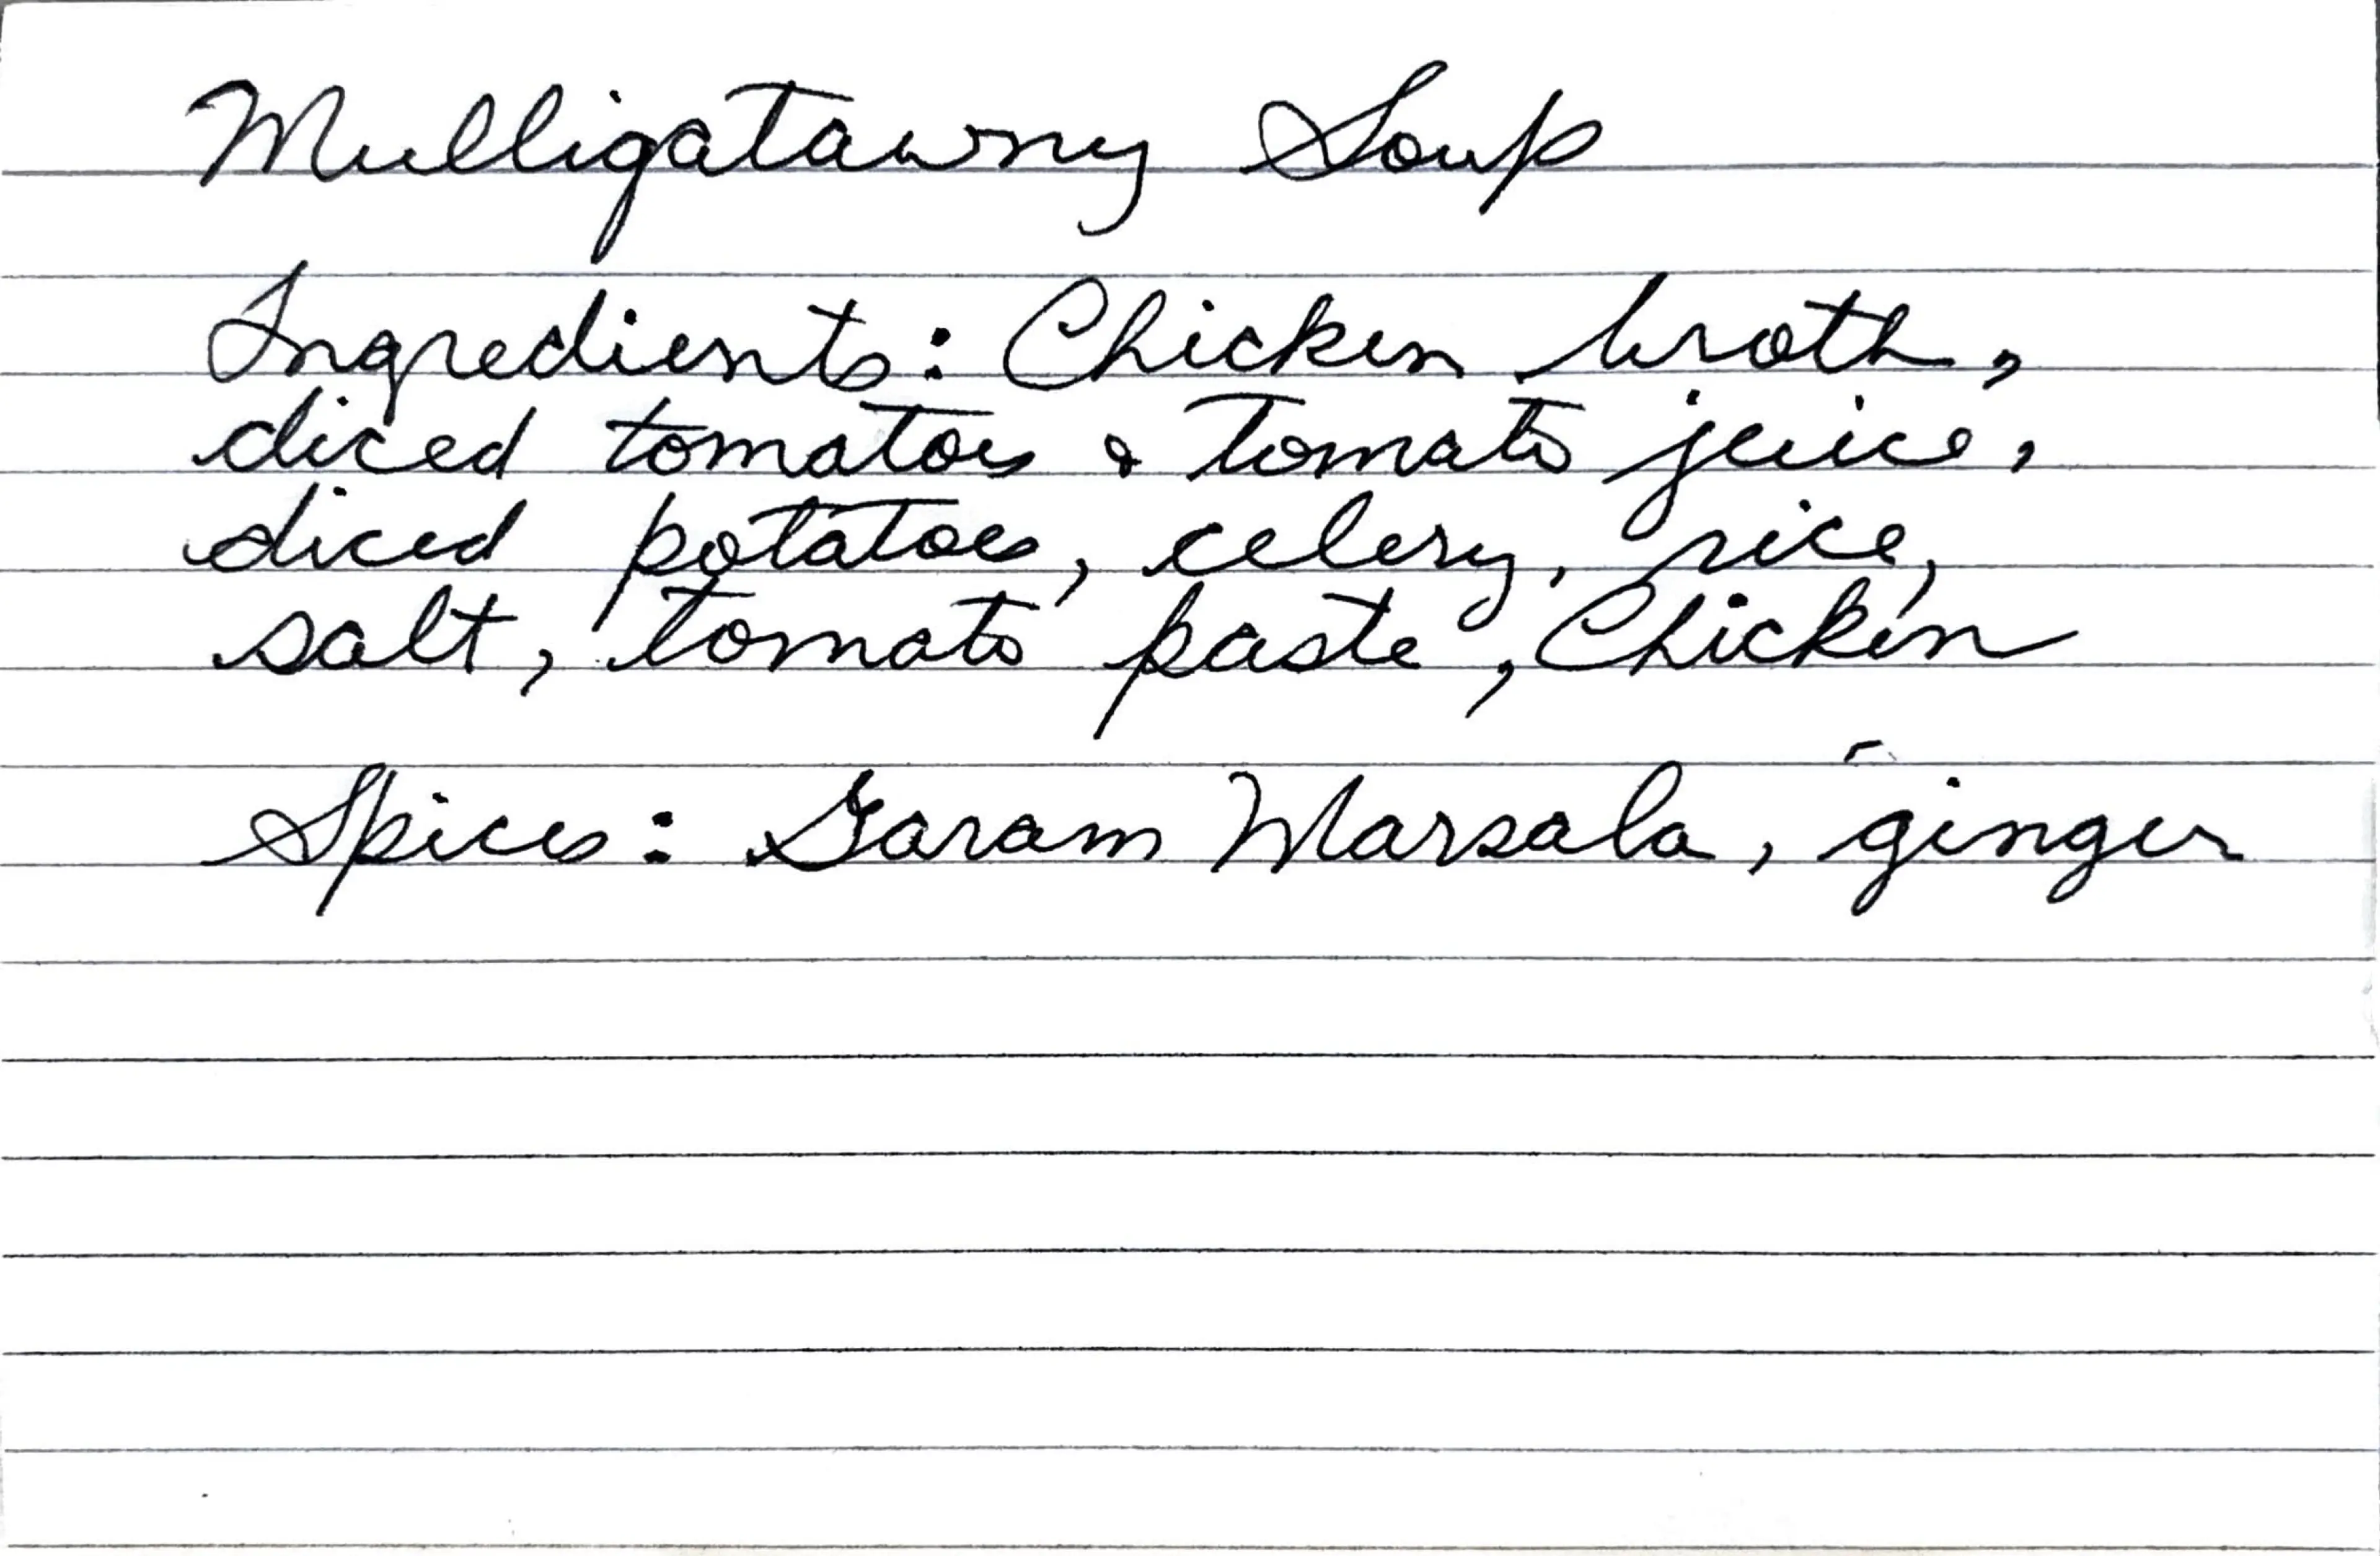 Mulligatawny Soup
Ingredients: Chicken broth,
diced tomatoes & tomato juice,
diced potatoes, celery, rice,
salt, tomato paste, Chicken
Spices: Garam Marsala, ginger